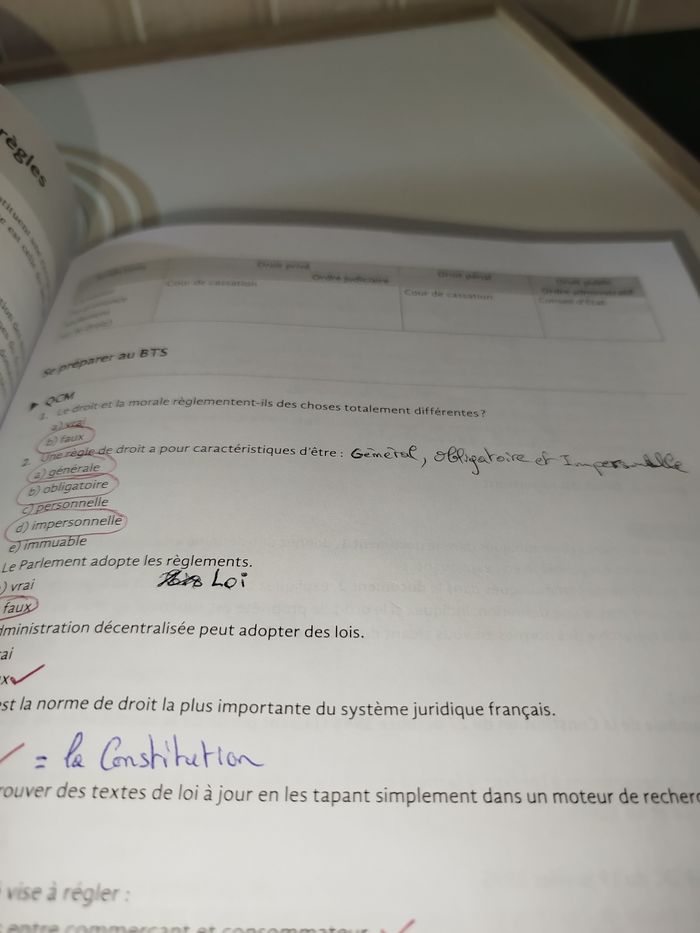 règles
Droit privé
Droit pénal
Droit public
Ordre judiciaire
Ordre administratif
Cour de cassation
Cour de cassation
Conseil d'État
Se préparer au BTS
▶ QCM
1. Le droit et la morale règlementent-ils des choses totalement différentes ?
a) vrai
b) faux
2. Une règle de droit a pour caractéristiques d'être : Général, obligatoire et Impersonnelle
a) générale
b) obligatoire
c) personnelle
d) impersonnelle
e) immuable
Le Parlement adopte les règlements.
) vrai
Loi
faux
dministration décentralisée peut adopter des lois.
ai
x
est la norme de droit la plus importante du système juridique français.
= la Constitution
rouver des textes de loi à jour en les tapant simplement dans un moteur de recherc
vise à régler :
entre commerçant et consommateur